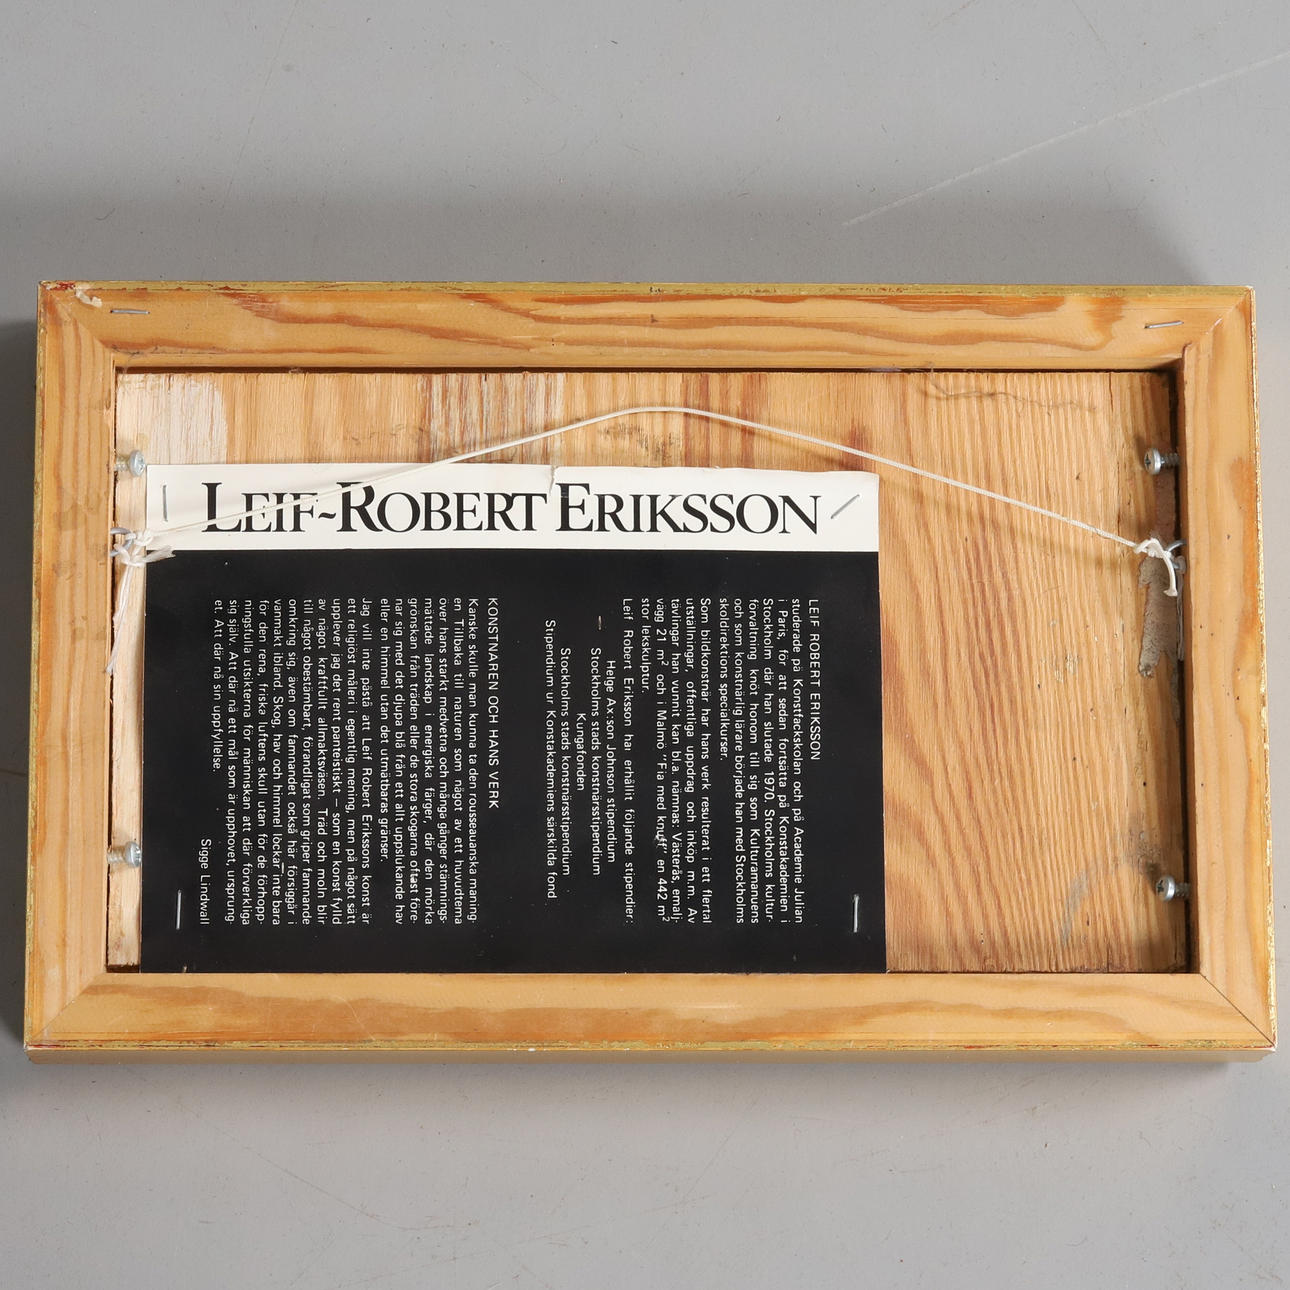 LEIF~ROBERT ERIKSSON
LEIF ROBERT ERIKSSON
studerade på Konstfackskolan och på Academie Julian
i Paris, för att sedan fortsätta på Konstakademien i
Stockholm där han slutade 1970. Stockholms kultur-
förvaltning knöt honom till sig som Kulturamanuens
och som konstnärlig lärare började han med Stockholms
skoldirektions specialkurser.
Som bildkonstnär har hans verk resulterat i ett flertal
utställningar, offentliga uppdrag och inköp m.m. Av
tävlingar han vunnit kan bl.a. nämnas: Västerås, emalj-
vägg 21 m² och i Malmö "Fia med knuff" en 442 m²
stor lekskulptur.
Leif Robert Eriksson har erhållit följande stipendier:
Helge Ax:son Johnson stipendium
Stockholms stads konstnärsstipendium
Kungafonden
Stockholms stads konstnärsstipendium
Stipendium ur Konstakademiens särskilda fond
KONSTNÄREN OCH HANS VERK
Kanske skulle man kunna ta den rousseauanska maning
en Tillbaka till naturen som något av ett huvudtema
över hans starkt medvetna och många gånger stämnings-
mättade landskap i energiska färger, där den mörka
grönskan från träden eller de stora skogarna oftast före-
nar sig med det djupa blå från ett allt uppslukande hav
eller en himmel utan det utmätbaras gränser.
Jag vill inte påstå att Leif Robert Erikssons konst är
ett religiöst måleri i egentlig mening, men på något sätt
upplever jag det rent panteistiskt – som en konst fylld
av något kraftfullt allmaktsväsen. Träd och moln blir
till något obestämbart, förandligat som griper famnande
omkring sig, även om famnandet också här försiggår i
vanmakt ibland. Skog, hav och himmel lockar inte bara
för den rena, friska luftens skull utan för de förhopp-
ningsfulla utsikterna för människan att där förverkliga
sig själv. Att där nå ett mål som är upphovet, ursprung-
et. Att där nå sin uppfyllelse.
Sigge Lindwall